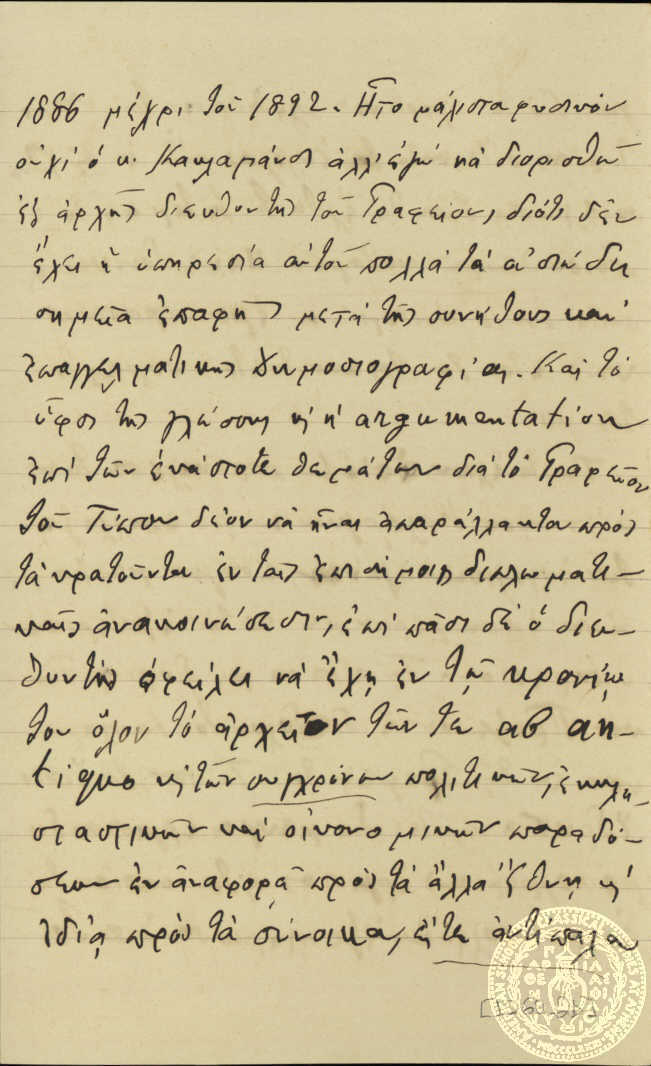 1886 μέχρι τοῦ 1892. Ἦτο μάλιστα φυσικὸν
οὐχὶ ὁ κ. Κακλαμάνος ἀλλ' ἐγὼ νὰ διορισθῶ
ἐξ ἀρχῆς διευθυντὴς τοῦ Γραφείου, διότι δὲν
ἔχει ἡ ὑπηρεσία αὐτοῦ πολλὰ τὰ οὐσιώδη
σημεῖα ἐπαφῆς μετὰ τῆς συνήθους καὶ
ἐπαγγελματικῆς δημοσιογραφίας. Καὶ τὸ
ὕφος τῆς γλώσσης κ' ἡ argumentation
ἐπὶ τῶν ἑκάστοτε θεμάτων διὰ τὸ Γραφεῖον
τοῦ Τύπου δέον νὰ ἦναι ἀπαράλλακτον πρὸς
τὰ κρατοῦντα ἐν ταῖς ἐπισήμοις διπλωματι-
καῖς ἀνακοινώσεσιν, ἐπὶ πᾶσι δὲ ὁ διευ-
θυντὴς ὀφείλει νὰ ἔχῃ ἐν τῷ κρανίῳ
του ὅλον τὸ ἀρχεῖον τῶν τε ab an-
tiquo κ' τῶν συγχρόνων πολιτικῶν, ἐκκλη-
σιαστικῶν καὶ οἰκονομικῶν παραδό-
σεων ἐν ἀναφορᾷ πρὸς τὰ ἄλλα ἔθνη κ'
ἰδίᾳ πρὸς τὰ σύνοικα, εἴτε ἀντίπαλα